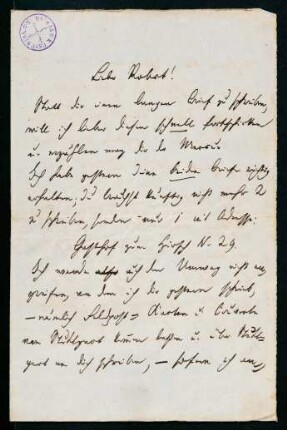 Lieber Robert!
Statt dir einen langen Brief zu schreiben,
will ich lieber diesen schnell fortschicken
u. erzählen mag dir die Marie.
Ich habe gestern deine beiden Briefe richtig
erhalten; du brauchst künftig nicht mehr 2
zu schreiben, sondern nur 1 mit Adresse:
Gasthof zum Hirsch N. 29.
Ich werde auch den Umweg nicht
ergreifen, von dem ich dir gestern schrieb,
– nämlich Feldpost = Karten u. Couverte
von Stuttgart kommen lassen u. über Stutt-
gart an dich schreiben, –